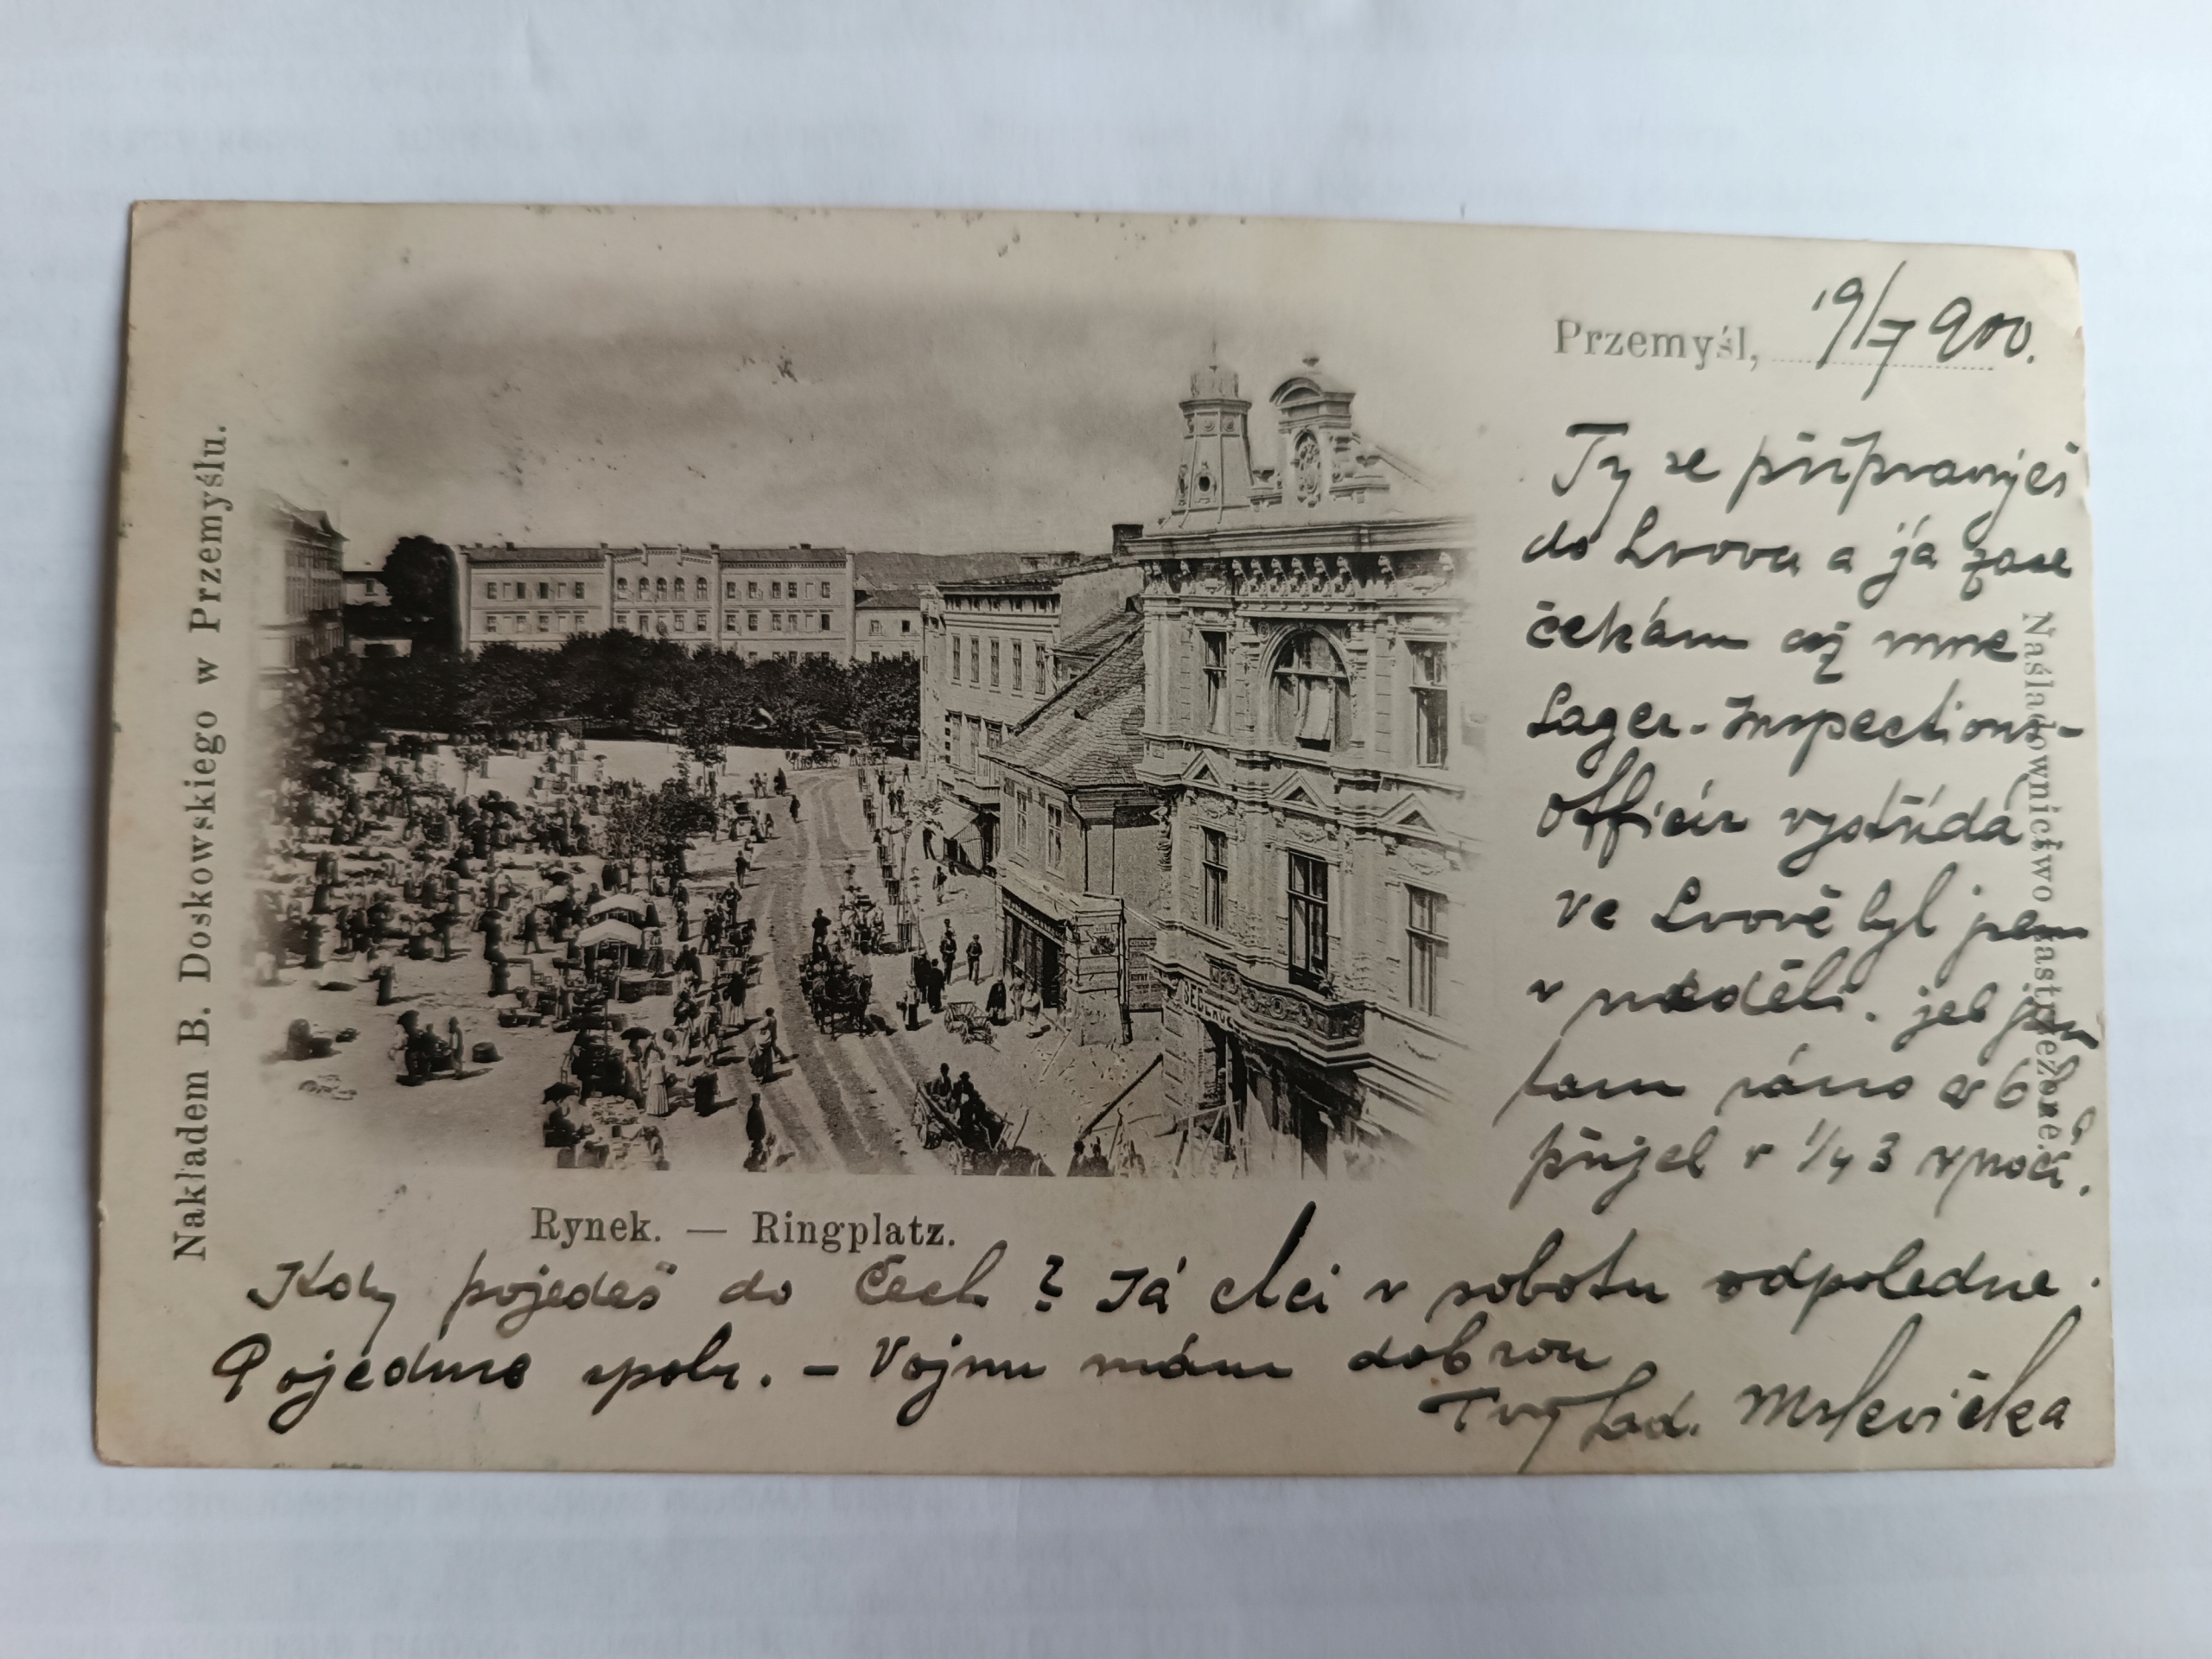 Przemyśl, 19/7 900.
Ty se připravuješ
do Lvova a já zase
čekám až mne
Lager-Inspections-
Officír vystřídá
ve Lvově byl jsem
v neděli. jel jsem
tam ráno v 6
přijel v 1/4 3 v noci.
Rynek. — Ringplatz.
Kdy pojedeš do Čech? Já chci v sobotu odpoledne.
Pojedme spolu. – Vojnu mám dobrou
Tvůj Lad.
Nakładem B. Doskowskiego w Przemyślu.
Naśladownictwo zastrzeżone.
SEDLACZEK